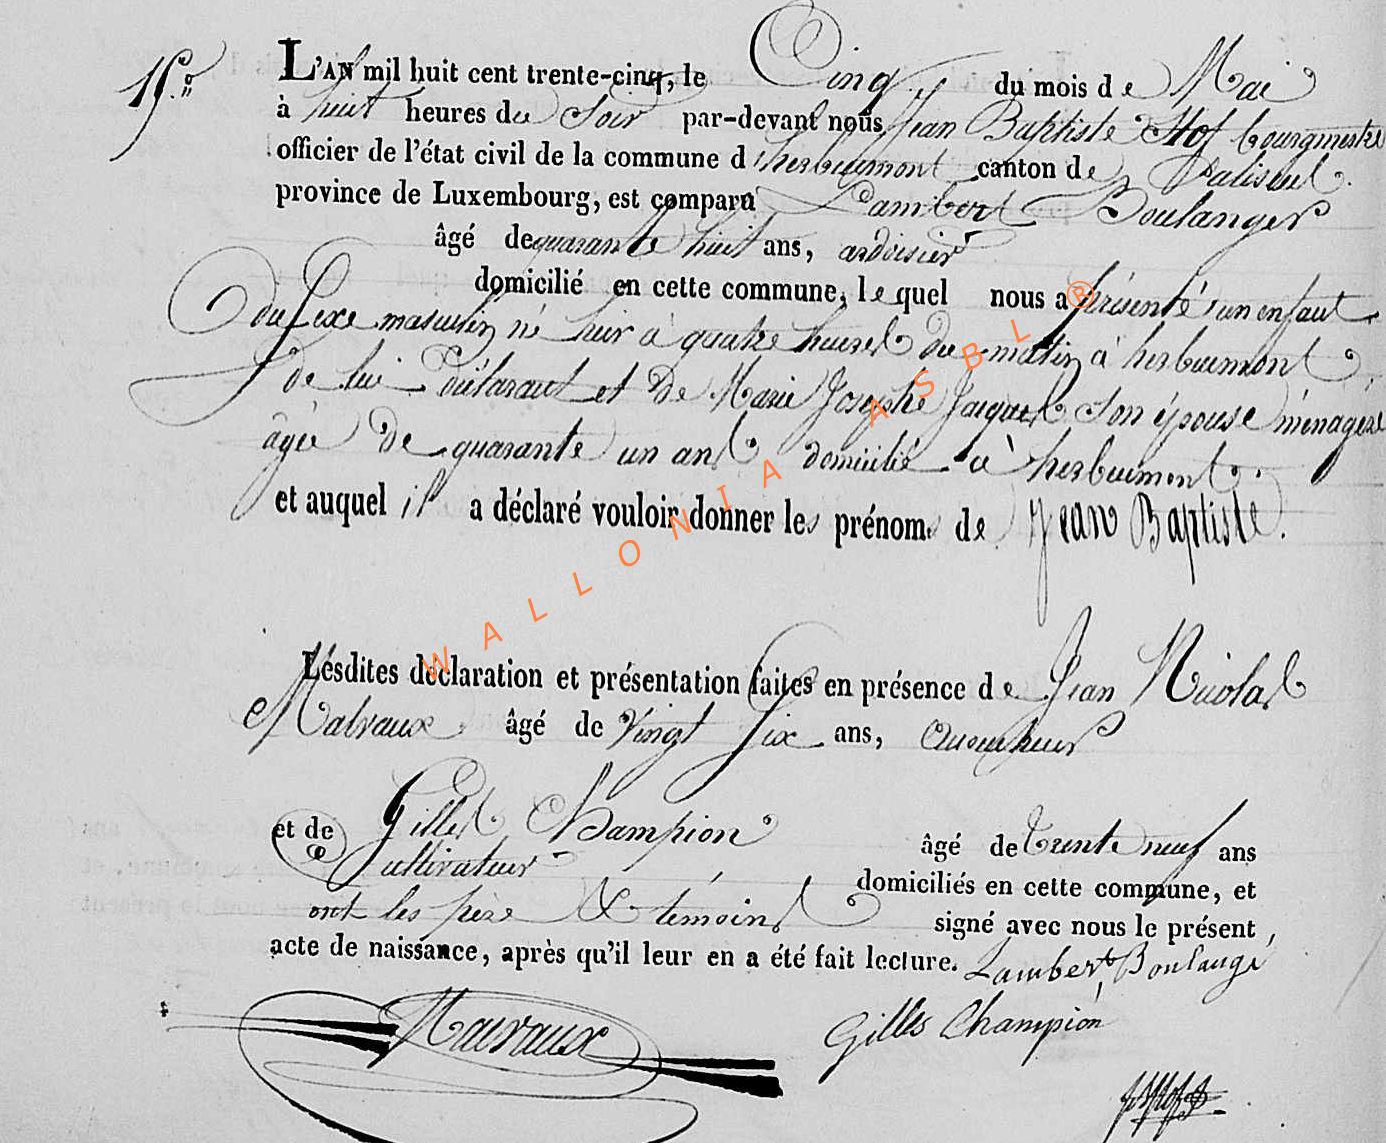 15.
L'AN mil huit cent trente-cinq, le Cinq du mois de Mai
à huit heures du Soir par-devant nous Jean Baptiste Hof bourgmestre
officier de l'état civil de la commune d'herbeumont canton de Paliseul
province de Luxembourg, est comparu Lambert Boulanger
âgé de quarante huit ans, ardoisier
domicilié en cette commune, lequel nous a présenté un enfant
du Sexe masculin né hier à quatre heures du matin à herbeumont
de lui déclarant et de Marie Josephe Jacques Son épouse ménagere
âgée de quarante un ans domicilié à herbeumont
et auquel il a déclaré vouloir donner les prénoms de Jean Baptiste.
Lesdites déclaration et présentation faites en présence de Jean Nicolas
Malvaux âgé de Vingt Six ans,
et de Gilles Champion âgé de trente neuf ans
Cultivateur domiciliés en cette commune, et
ont les père & témoins signé avec nous le présent
acte de naissance, après qu'il leur en a été fait lecture. Lambert Boulange
Malvaux
Gilles Champion
WALLONIA ASBL ®